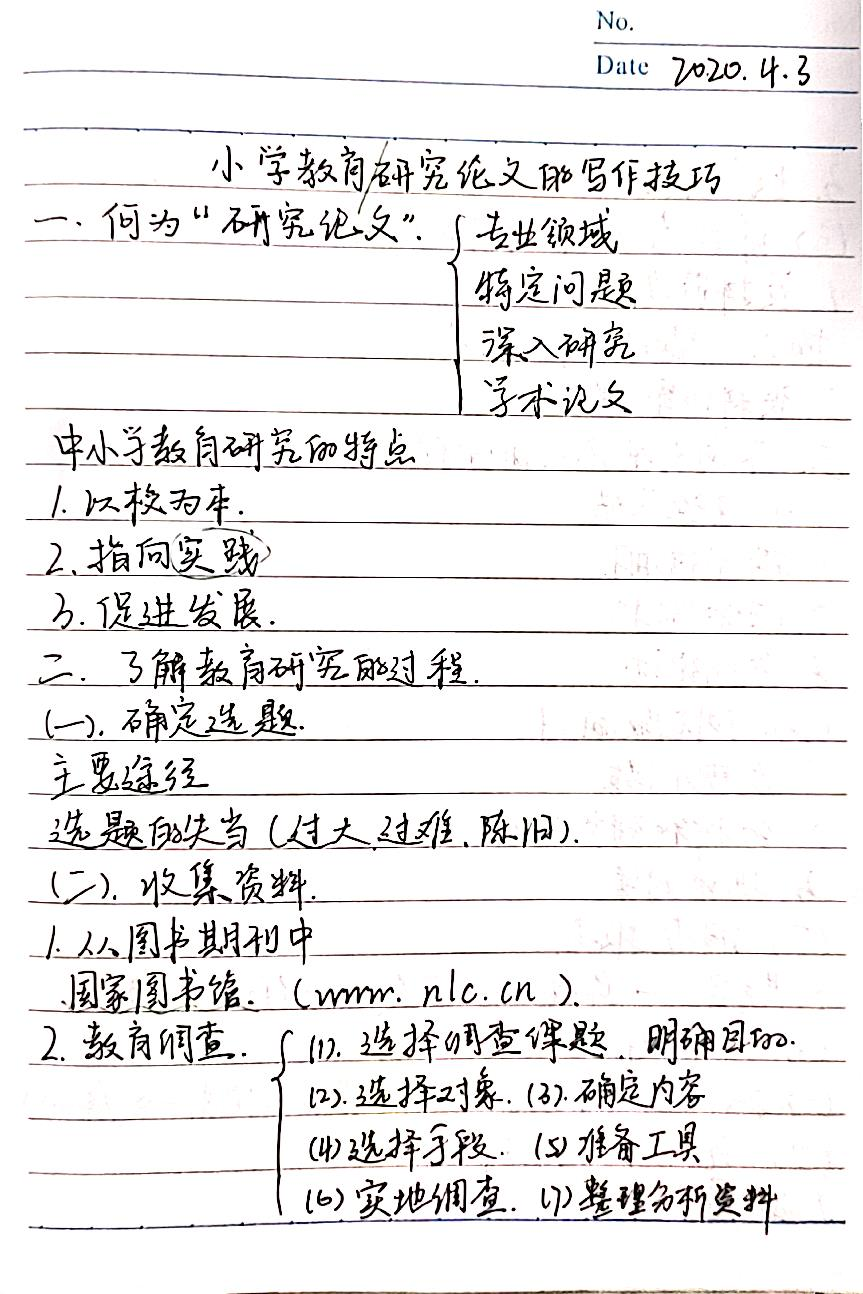 No.
Date 2020.4.3
小学教育/研究论文的写作技巧
一、何为“研究论文”. { 专业领域
特定问题
深入研究
学术论文
中小学教育研究的特点
1. 以校为本.
2. 指向实践
3. 促进发展.
二. 了解教育研究的过程.
(一). 确定选题.
主要途径
选题的失当(过大、过难、陈旧).
(二). 收集资料.
1. 从图书期刊中
国家图书馆. (www.nlc.cn).
2. 教育调查. { (1). 选择调查课题、明确目的.
(2). 选择对象. (3). 确定内容
(4) 选择手段. (5) 准备工具
(6) 实地调查. (7) 整理分析资料